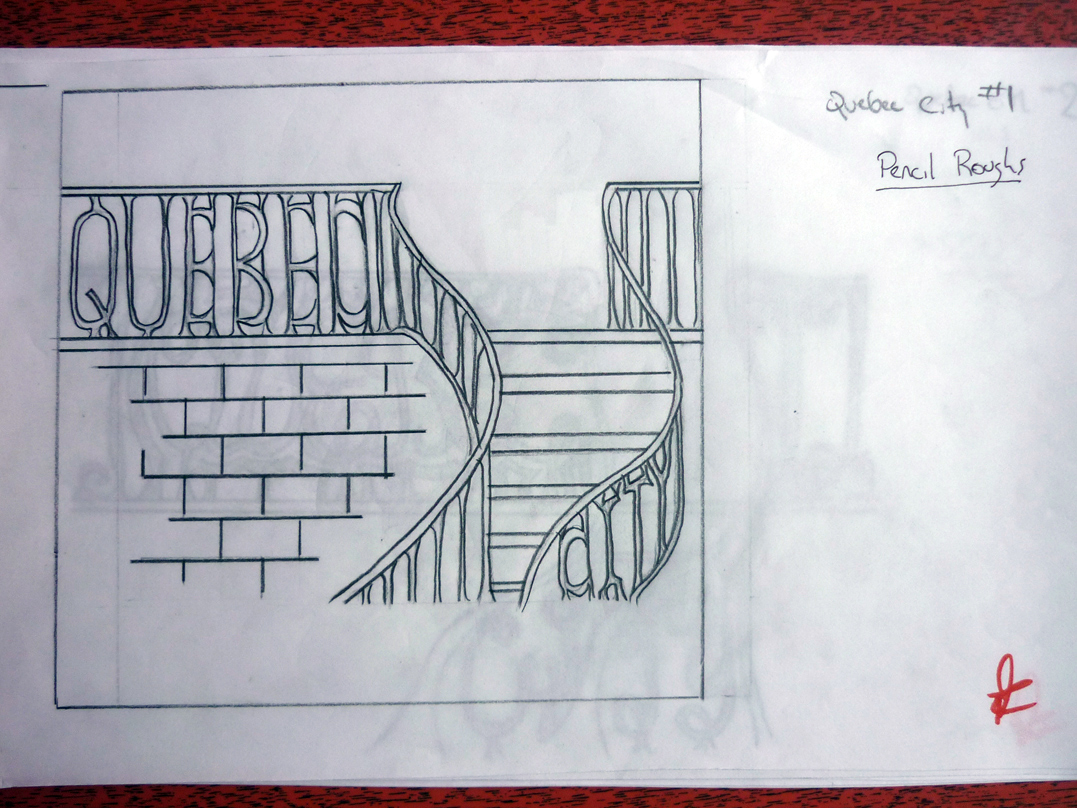 Quebec City #1
Pencil Roughs
QUEBEC
CITY